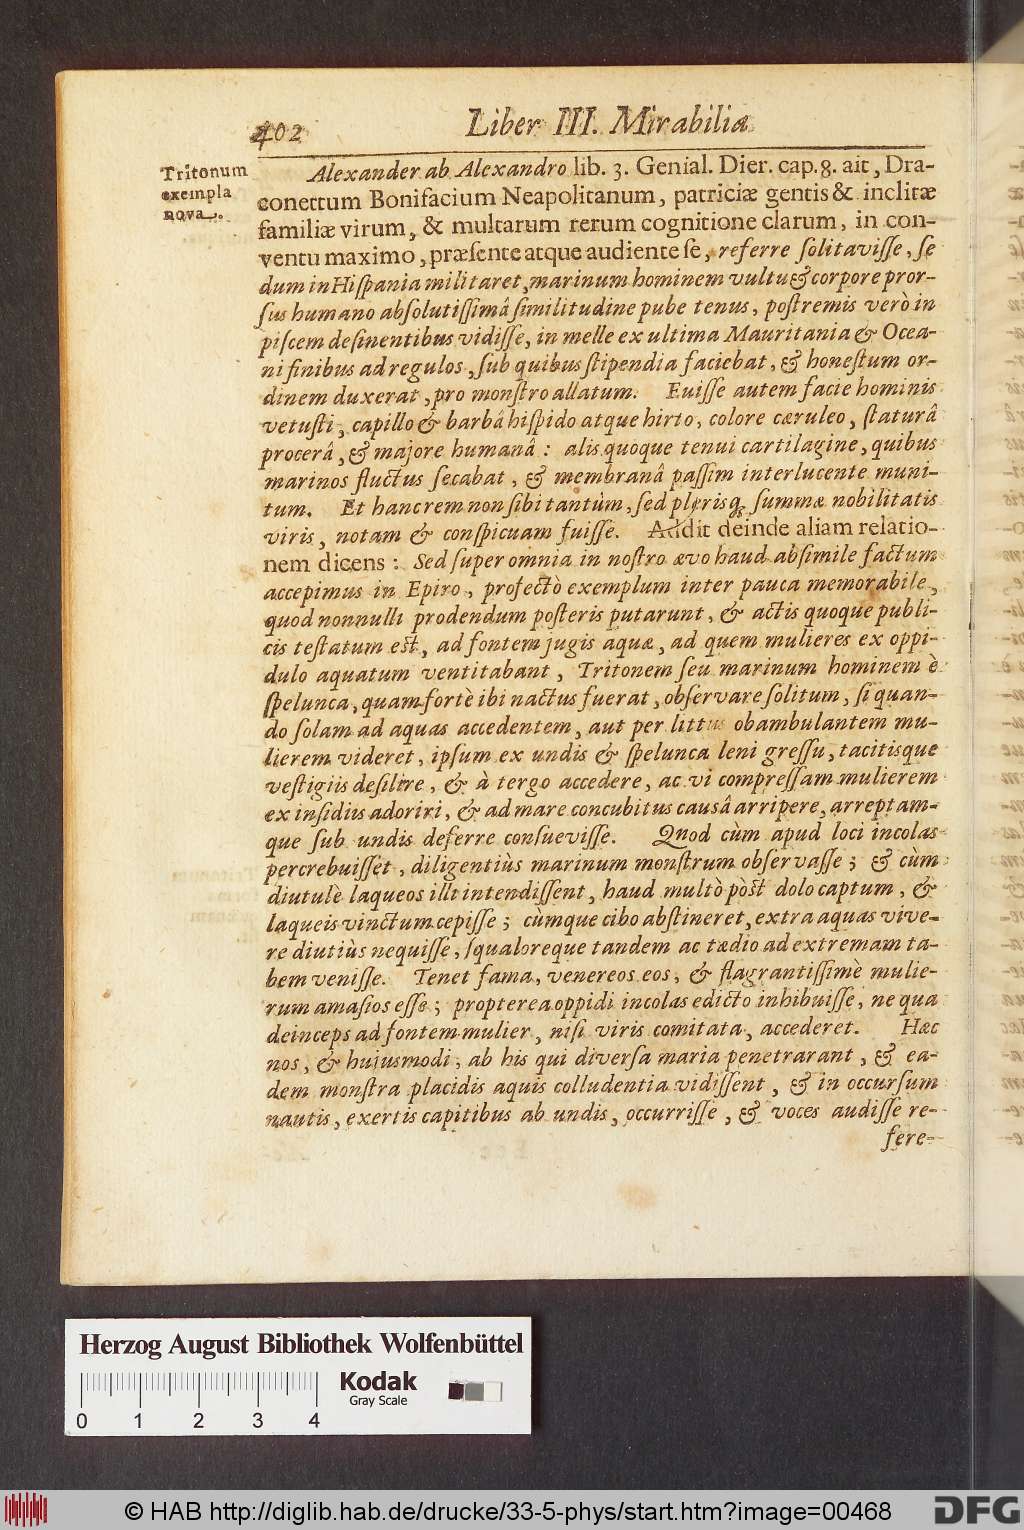 402 Liber III. Mirabilia
Tritonum
exempla
nova.
Alexander ab Alexandro lib. 3. Genial. Dier. cap. 8. ait, Dra-
conettum Bonifacium Neapolitanum, patriciæ gentis & inclitæ
familiæ virum, & multarum rerum cognitione clarum, in con-
ventu maximo, præsente atque audiente se, referre solitavisse, se
dum in Hispania militaret, marinum hominem vultu & corpore pror-
sus humano absolutissimâ similitudine pube tenus, postremis verò in
piscem desinentibus vidisse, in melle ex ultima Mauritania & Ocea-
ni finibus ad regulos, sub quibus stipendia faciebat, & honestum or-
dinem duxerat, pro monstro allatum. Fuisse autem facie hominis
vetusti, capillo & barbâ hispido atque hirto, colore cæruleo, staturâ
procerâ, & majore humanâ: alis quoque tenui cartilagine, quibus
marinos fluctus secabat, & membranâ passim interlucente muni-
tum. Et hanc rem non sibi tantùm, sed plerisq; summæ nobilitatis
viris, notam & conspicuam fuisse. Addit deinde aliam relatio-
nem dicens: Sed super omnia in nostro ævo haud absimile factum
accepimus in Epiro, profectò exemplum inter pauca memorabile,
quod nonnulli prodendum posteris putarunt, & actis quoque publi-
cis testatum est, ad fontem jugis aquæ, ad quem mulieres ex oppi-
dulo aquatum ventitabant, Tritonem seu marinum hominem è
spelunca, quam fortè ibi nactus fuerat, observare solitum, si quan-
do solam ad aquas accedentem, aut per littus obambulantem mu-
lierem videret, ipsum ex undis & spelunca leni gressu, tacitisque
vestigiis desilire, & à tergo accedere, ac vi compressam mulierem
ex insidius adoriri, & ad mare concubitus causâ arripere, arreptam-
que sub undis deferre consuevisse. Quod cùm apud loci incolas
percrebuisset, diligentiùs marinum monstrum observasse; & cùm
diutulè laqueos illi intendissent, haud multò pòst dolo captum, &
laqueis vinctum cepisse; cùmque cibo abstineret, extra aquas vive-
re diutiùs nequisse, squaloreque tandem ac tædio ad extremam ta-
bem venisse. Tenet fama, venereos eos, & flagrantissimè mulie-
rum amasios esse; propterea oppidi incolas edicto inhibuisse, ne qua
deinceps ad fontem mulier, nisi viris comitata, accederet. Hæc
nos, & hujusmodi, ab his qui diversa maria penetrarant, & ea-
dem monstra placidis aquis colludentia vidissent, & in occursum
nautis, exertis capitibus ab undis, occurrisse, & voces audisse re-
fere-
Herzog August Bibliothek Wolfenbüttel
Kodak
Gray Scale
0 1 2 3 4
© HAB http://diglib.hab.de/drucke/33-5-phys/start.htm?image=00468
DFG